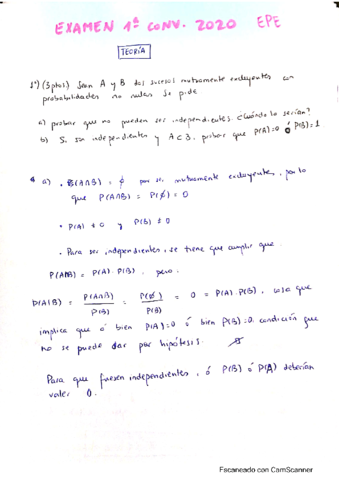 EXAMEN 1ª CONV. 2020 EPE
TEORÍA
1º) (3 ptos) Sean A y B dos sucesos mutuamente excluyentes con
probabilidades no nulas. Se pide
a) probar que no pueden ser independientes. ¿Cuándo lo serían?
b) Si son independientes y A ⊂ B, probar que P(A)=0 ó P(B)=1
a) • (A∩B) = ∅ por ser mutuamente excluyentes, por lo
que P(A∩B) = P(∅) = 0
• P(A) ≠ 0 y P(B) ≠ 0
• Para ser independientes, se tiene que cumplir que
P(A∩B) = P(A)·P(B), pero
P(A|B) = P(A∩B)/P(B) = P(∅)/P(B) = 0 = P(A)·P(B), cosa que
implica que ó bien P(A)=0 ó bien P(B)=0, condición que
no se puede dar por hipótesis.
Para que fuesen independientes, ó P(B) ó P(A) deberían
valer 0.
Escaneado con CamScanner